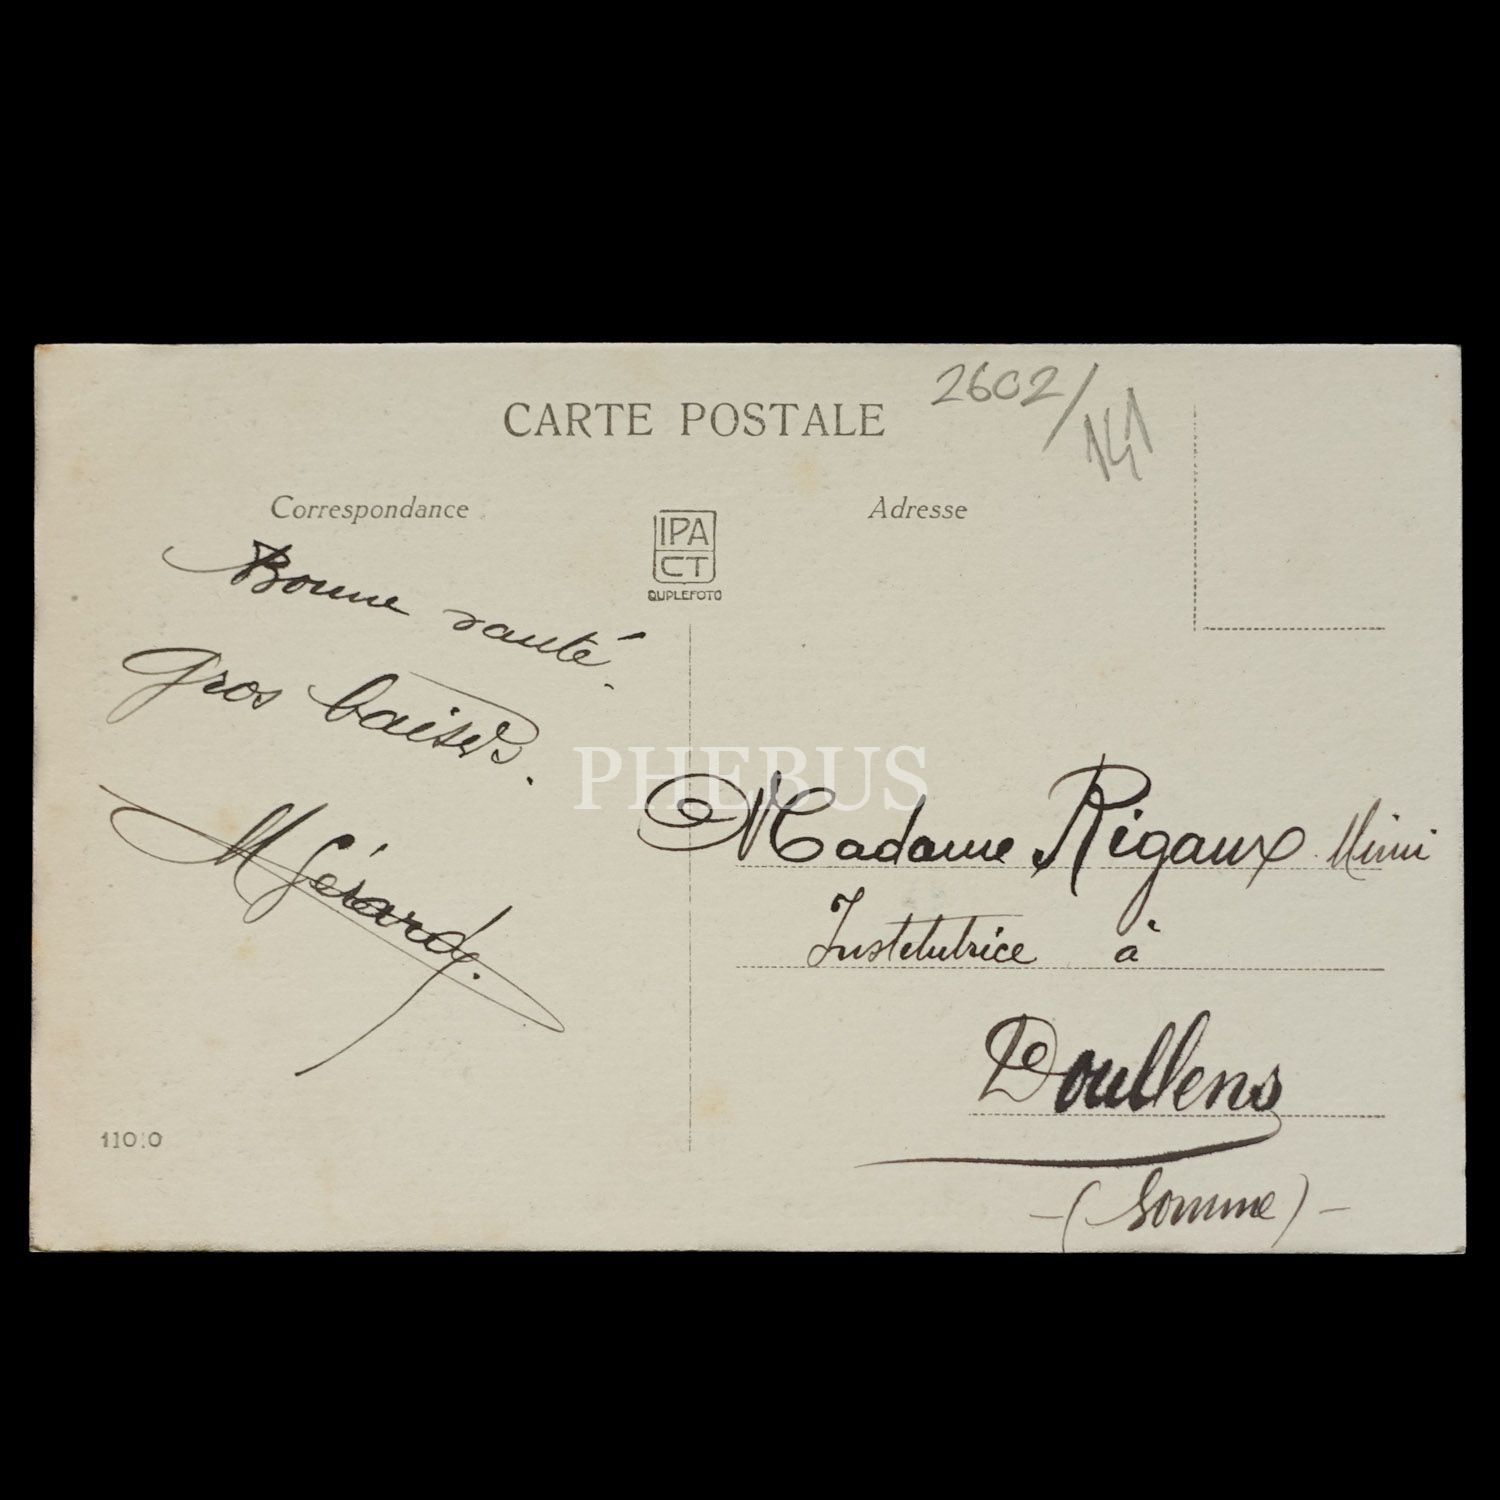 CARTE POSTALE
2602/
141
Correspondance
Adresse
IPA
CT
DUPLEFOTO
Bonne santé.
Gros baisers.
M Gérard.
PHEBUS
Madame Rigaux Mimi
Institutrice à
Doullens
- (Somme) -
11010